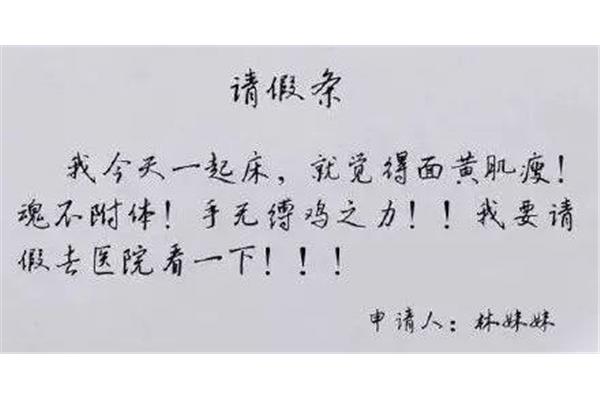 请假条
我今天一起床，就觉得面黄肌瘦！
魂不附体！手无缚鸡之力！！我要请
假去医院看一下！！！
申请人：林妹妹